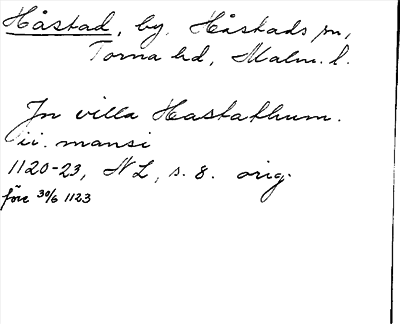 Håstad, by. Håstads sn,
Torna hd, Malm. l.
In villa Hastathum.
ii. mansi
1120-23, NL, s. 8. orig.
före 30/6 1123